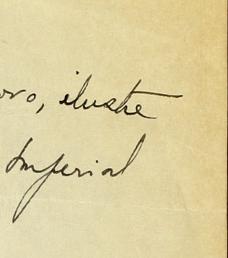 oro, ilustre
Imperial